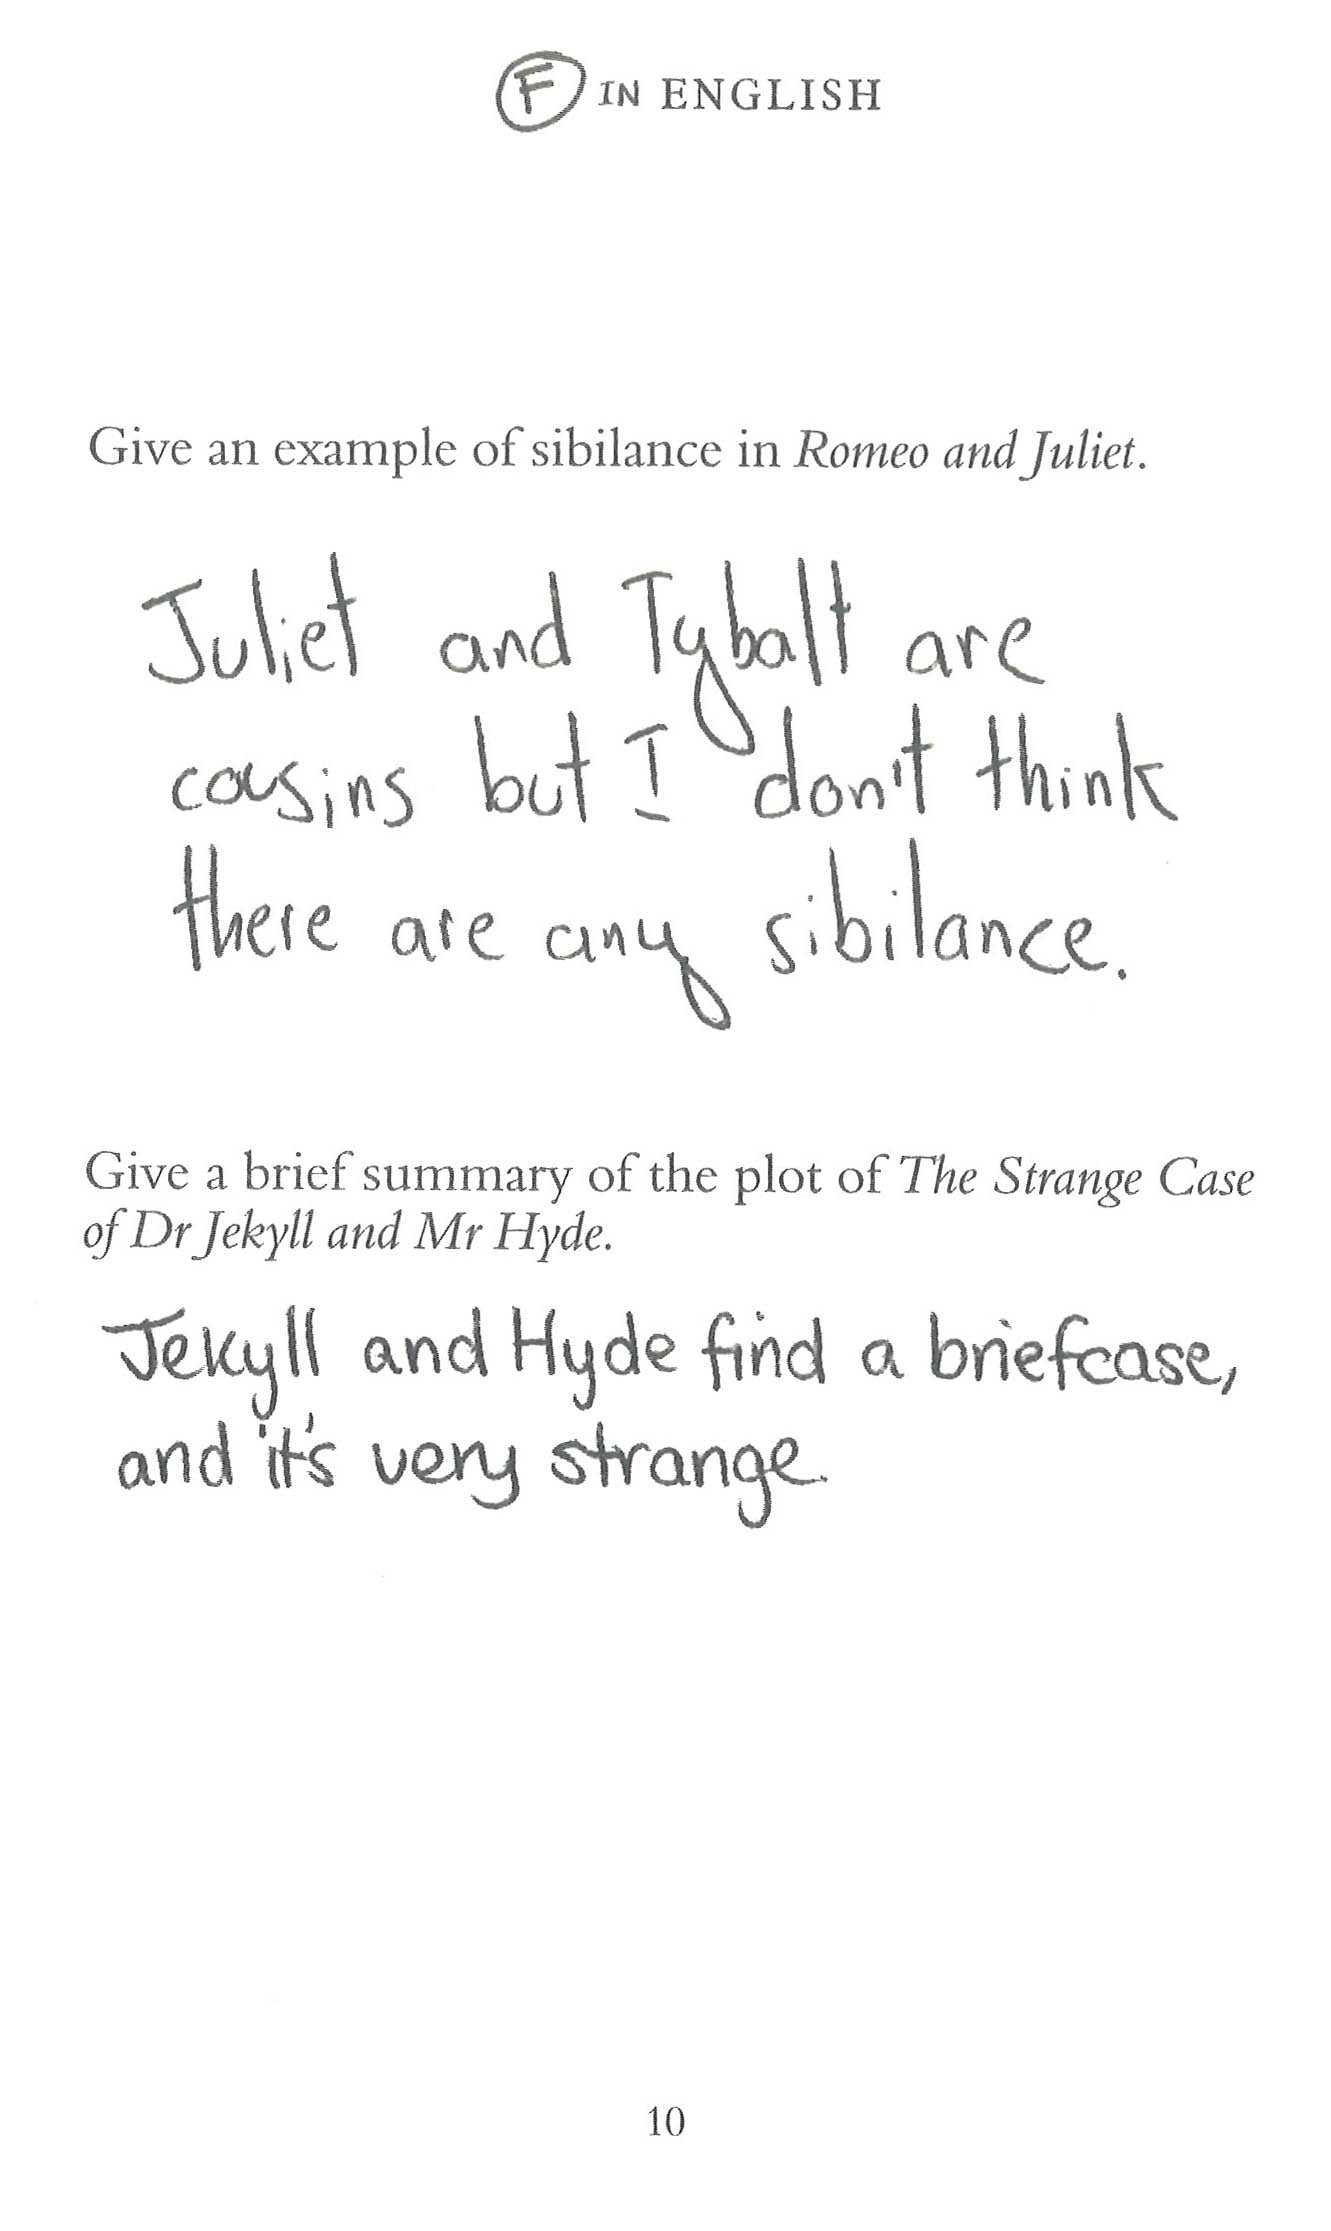 F IN ENGLISH
Give an example of sibilance in Romeo and Juliet.
Juliet and Tybalt are
cousins but I don't think
there are any sibilance.
Give a brief summary of the plot of The Strange Case
of Dr Jekyll and Mr Hyde.
Jekyll and Hyde find a briefcase,
and it's very strange.
10